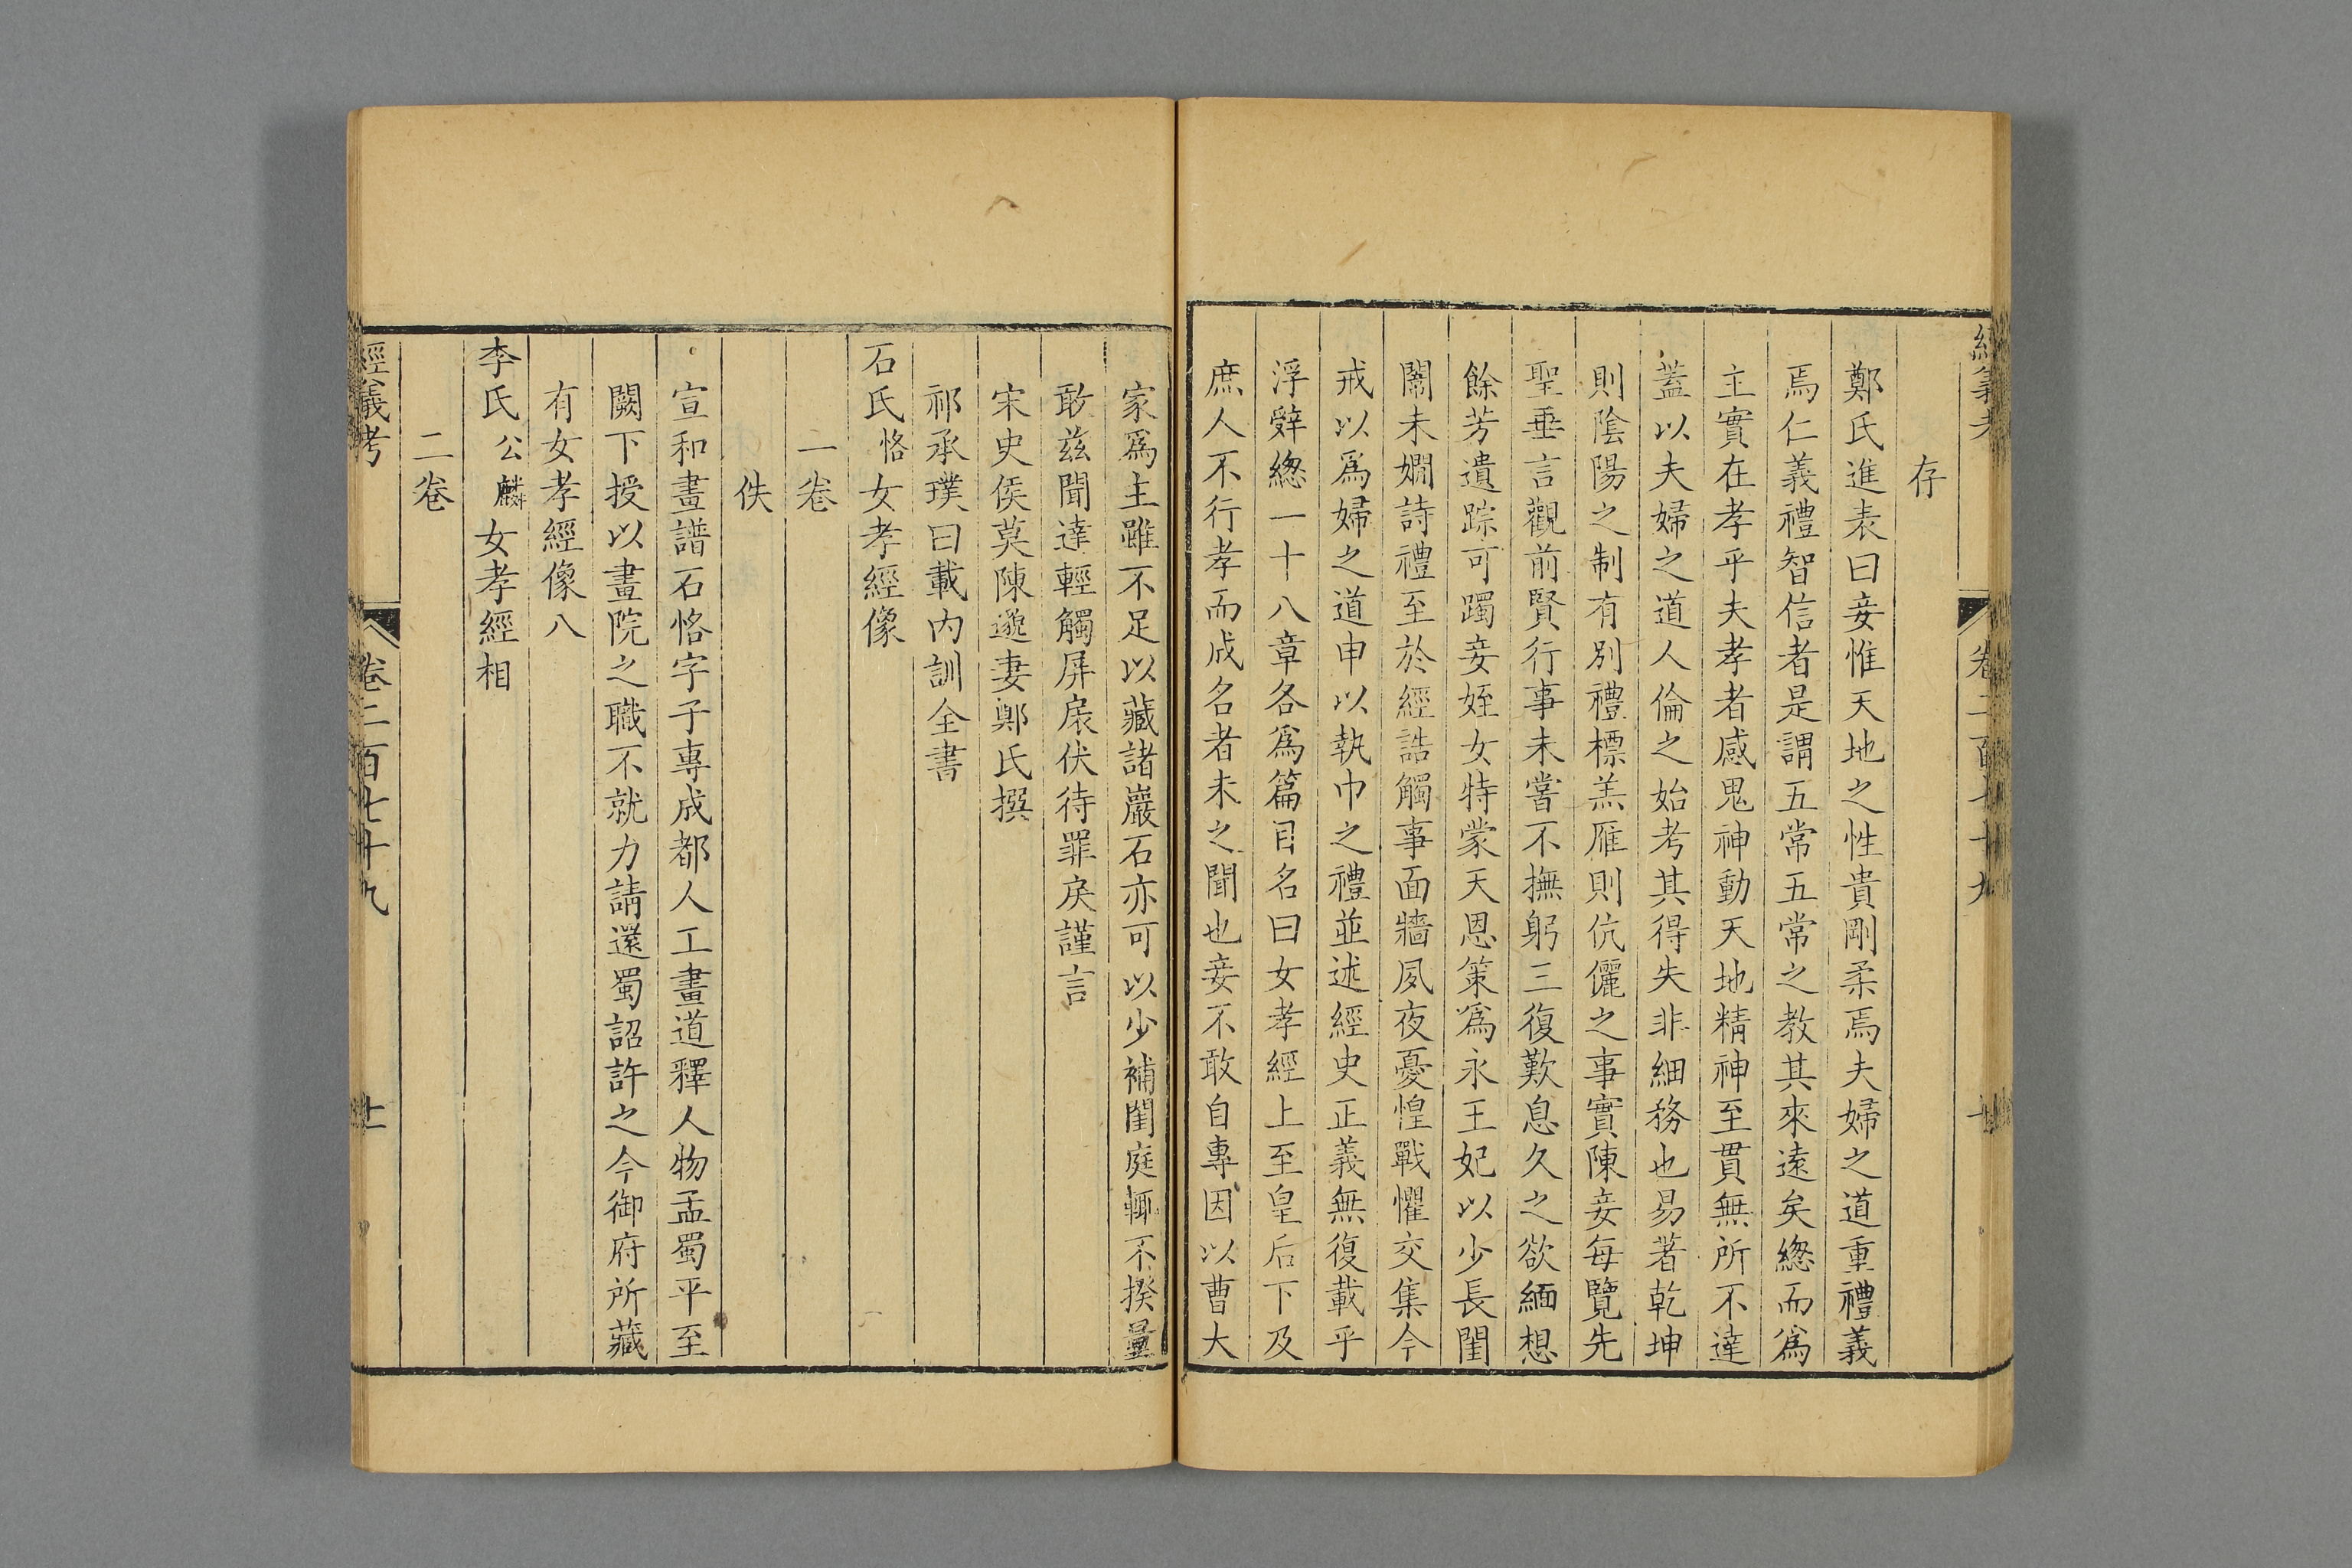 經義考
卷二百七十九
存
鄭氏進表曰妾惟天地之性貴剛柔焉夫婦之道重禮義
焉仁義禮智信者是謂五常五常之教其來遠矣緫而爲
主實在孝乎夫孝者感鬼神動天地精神至貫無所不達
蓋以夫婦之道人倫之始考其得失非細務也易著乾坤
則陰陽之制有別禮標羔雁則伉儷之事實陳妾每覽先
聖垂言觀前賢行事未嘗不撫躬三復歎息久之欲緬想
餘芳遺踪可躅妾姪女特蒙天恩策爲永王妃以少長閨
闈未嫺詩禮至於經誥觸事面牆夙夜憂惶戰懼交集今
戒以爲婦之道申以執巾之禮並述經史正義無復載乎
浮辭緫一十八章各爲篇目名曰女孝經上至皇后下及
庶人不行孝而成名者未之聞也妾不敢自專因以曹大
家爲主雖不足以藏諸巖石亦可以少補閨庭輒不揆量
敢兹聞達輕觸屏扆伏待罪戾謹言
宋史侯莫陳邈妻鄭氏撰
祁承㸁曰載內訓全書
石氏恪女孝經像
一卷
佚
宣和畫譜石恪字子專成都人工畫道釋人物孟蜀平至
闕下授以畫院之職不就力請還蜀詔許之今御府所藏
有女孝經像八
李氏公麟女孝經相
二卷
經義考
卷二百七十九